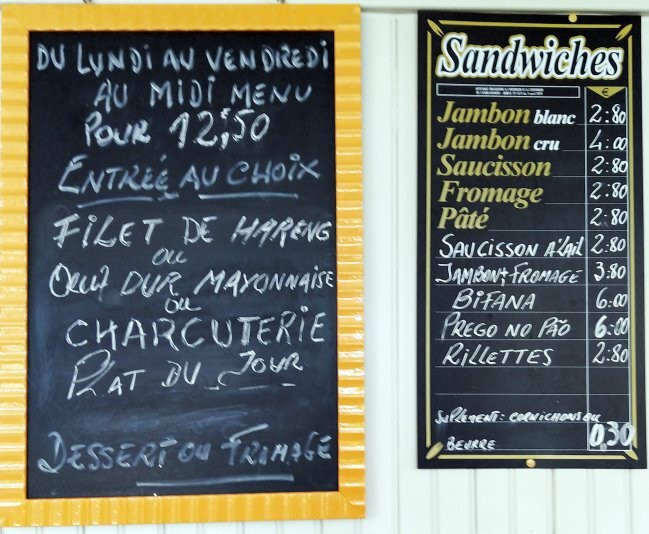 DU LUNDI AU VENDREDI
AU MIDI MENU
POUR 12€,50
ENTRÉE AU CHOIX
FILET DE HARENG
ou
OEUF DUR MAYONNAISE
ou
CHARCUTERIE
PLAT DU JOUR
DESSERT OU FROMAGE
Sandwiches
€
Jambon blanc 2:80
Jambon cru 4:00
Saucisson 2:80
Fromage 2:80
Pâté 2:80
SAUCISSON A L'AIL 2:80
JAMBON+FROMAGE 3:80
BIFANA 6:00
PREGO NO PÃO 6:00
RILLETTES 2:80
SUPLEMENT: CORNICHONS OU
BEURRE 0,30